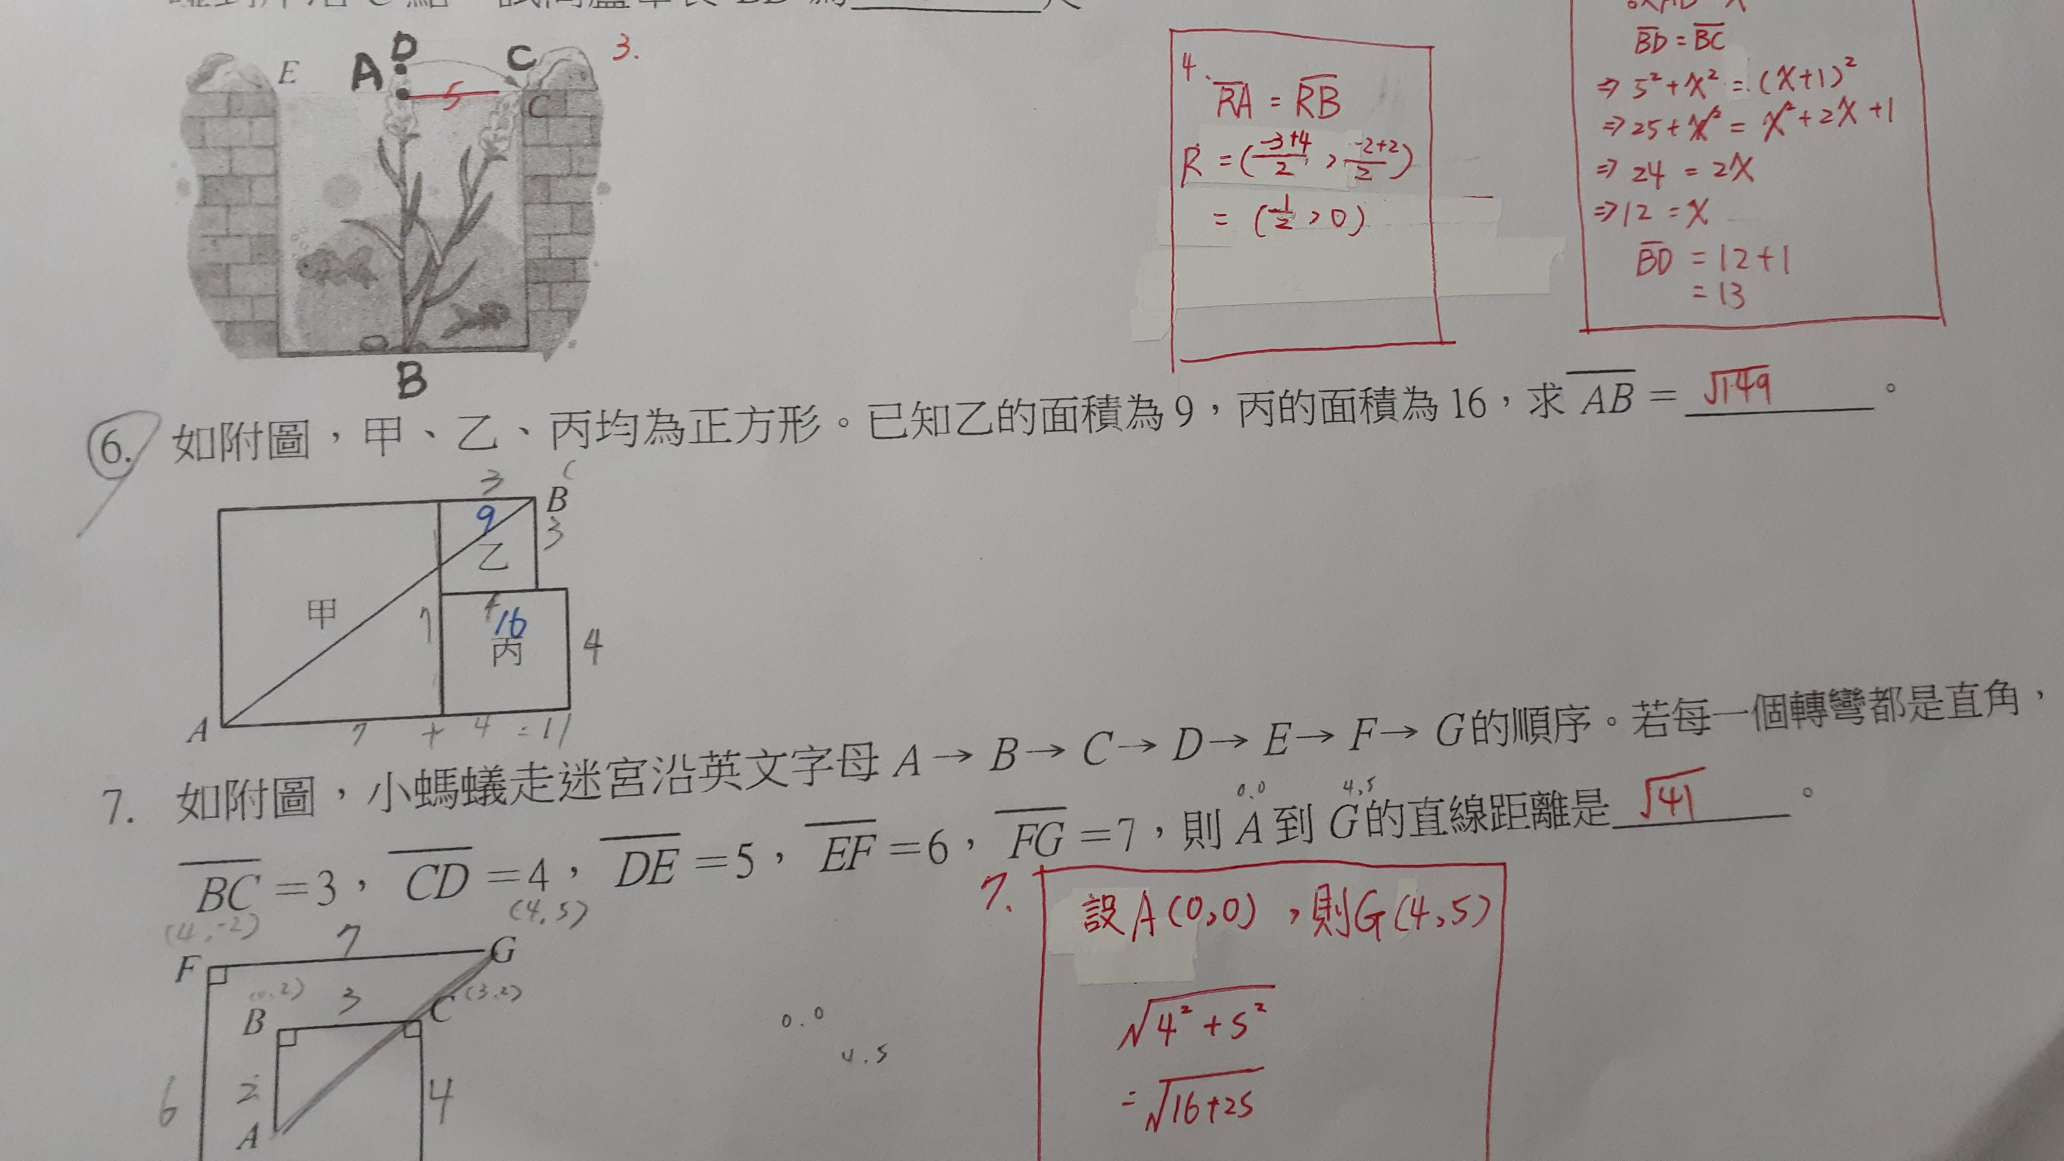 D
A
C
3.
E
5
C
B
4.
RA = RB
R = (-3+4/2 , -2+2/2)
= (1/2 , 0)
BD = BC
⇒ 5² + x² = (x+1)²
⇒ 25 + x² = x² + 2x + 1
⇒ 24 = 2x
⇒ 12 = x
BD = 12+1
= 13
6. 如附圖，甲、乙、丙均為正方形。已知乙的面積為 9，丙的面積為 16，求 AB = √149 。
3
B
9
3
乙
甲
7
4
16
丙
4
A
7 + 4 = 11
7. 如附圖，小螞蟻走迷宮沿英文字母 A → B → C → D → E → F → G 的順序。若每一個轉彎都是直角，
0.0 4,5
BC = 3，CD = 4，DE = 5，EF = 6，FG = 7，則 A 到 G 的直線距離是 √41 。
(4,-2)
(4,5)
7
F
G
3
(3,2)
B
C
2
6
4
A
0.0
4.5
7.
設A(0,0)，則G(4,5)
√4²+5²
= √16+25